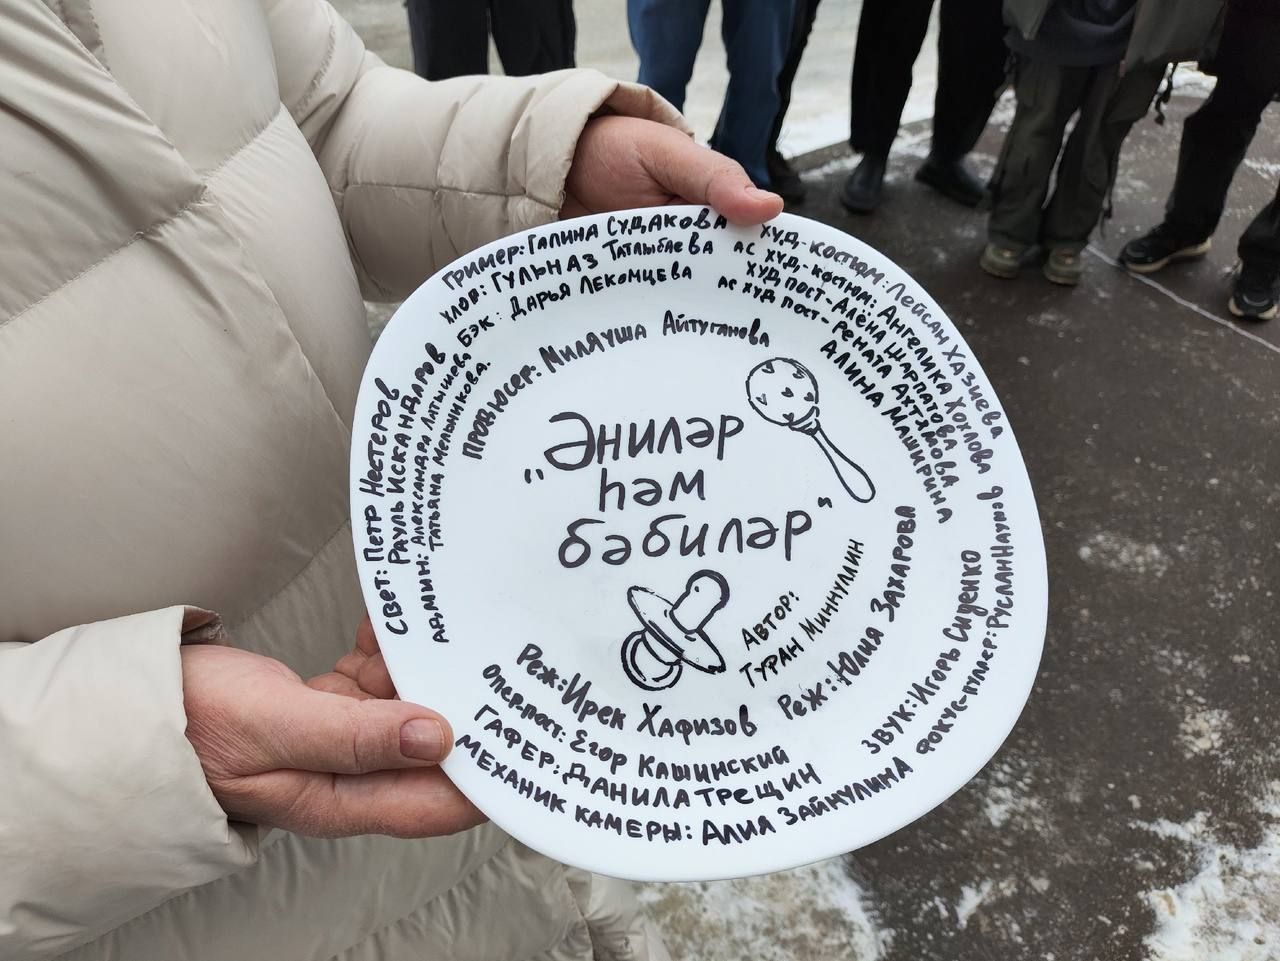 "Әниләр
һәм
бәбиләр"
Автор:
Туран Миннуллин
Продюсер: Миляуша Айтуганова
Реж: Ирек Хафизов
Реж: Юлия Захарова
Грим­ер: Галина Судакова
хлоп: Гульназ Татлыбаева
Бэк: Дарья Лекомцева
худ-костюм: Лейсан Хазиева
ас худ-костюм: Ангелика Хохлова
худ пост-Алёна Шарпатова
ас худ пост-Рената Ахтямова
Алина Маширина
Свет: Петр Нестеров
Рауль Искандаров
Админ: Александра Латышева
Татьяна Мельникова.
Опер.пост: Егор Кашинский
Гафер: Данила Трещин
Механик камеры: Алия Зайнулина
Звук: Игорь Сиденко
Фокус-пуллер: Руслан Наумов